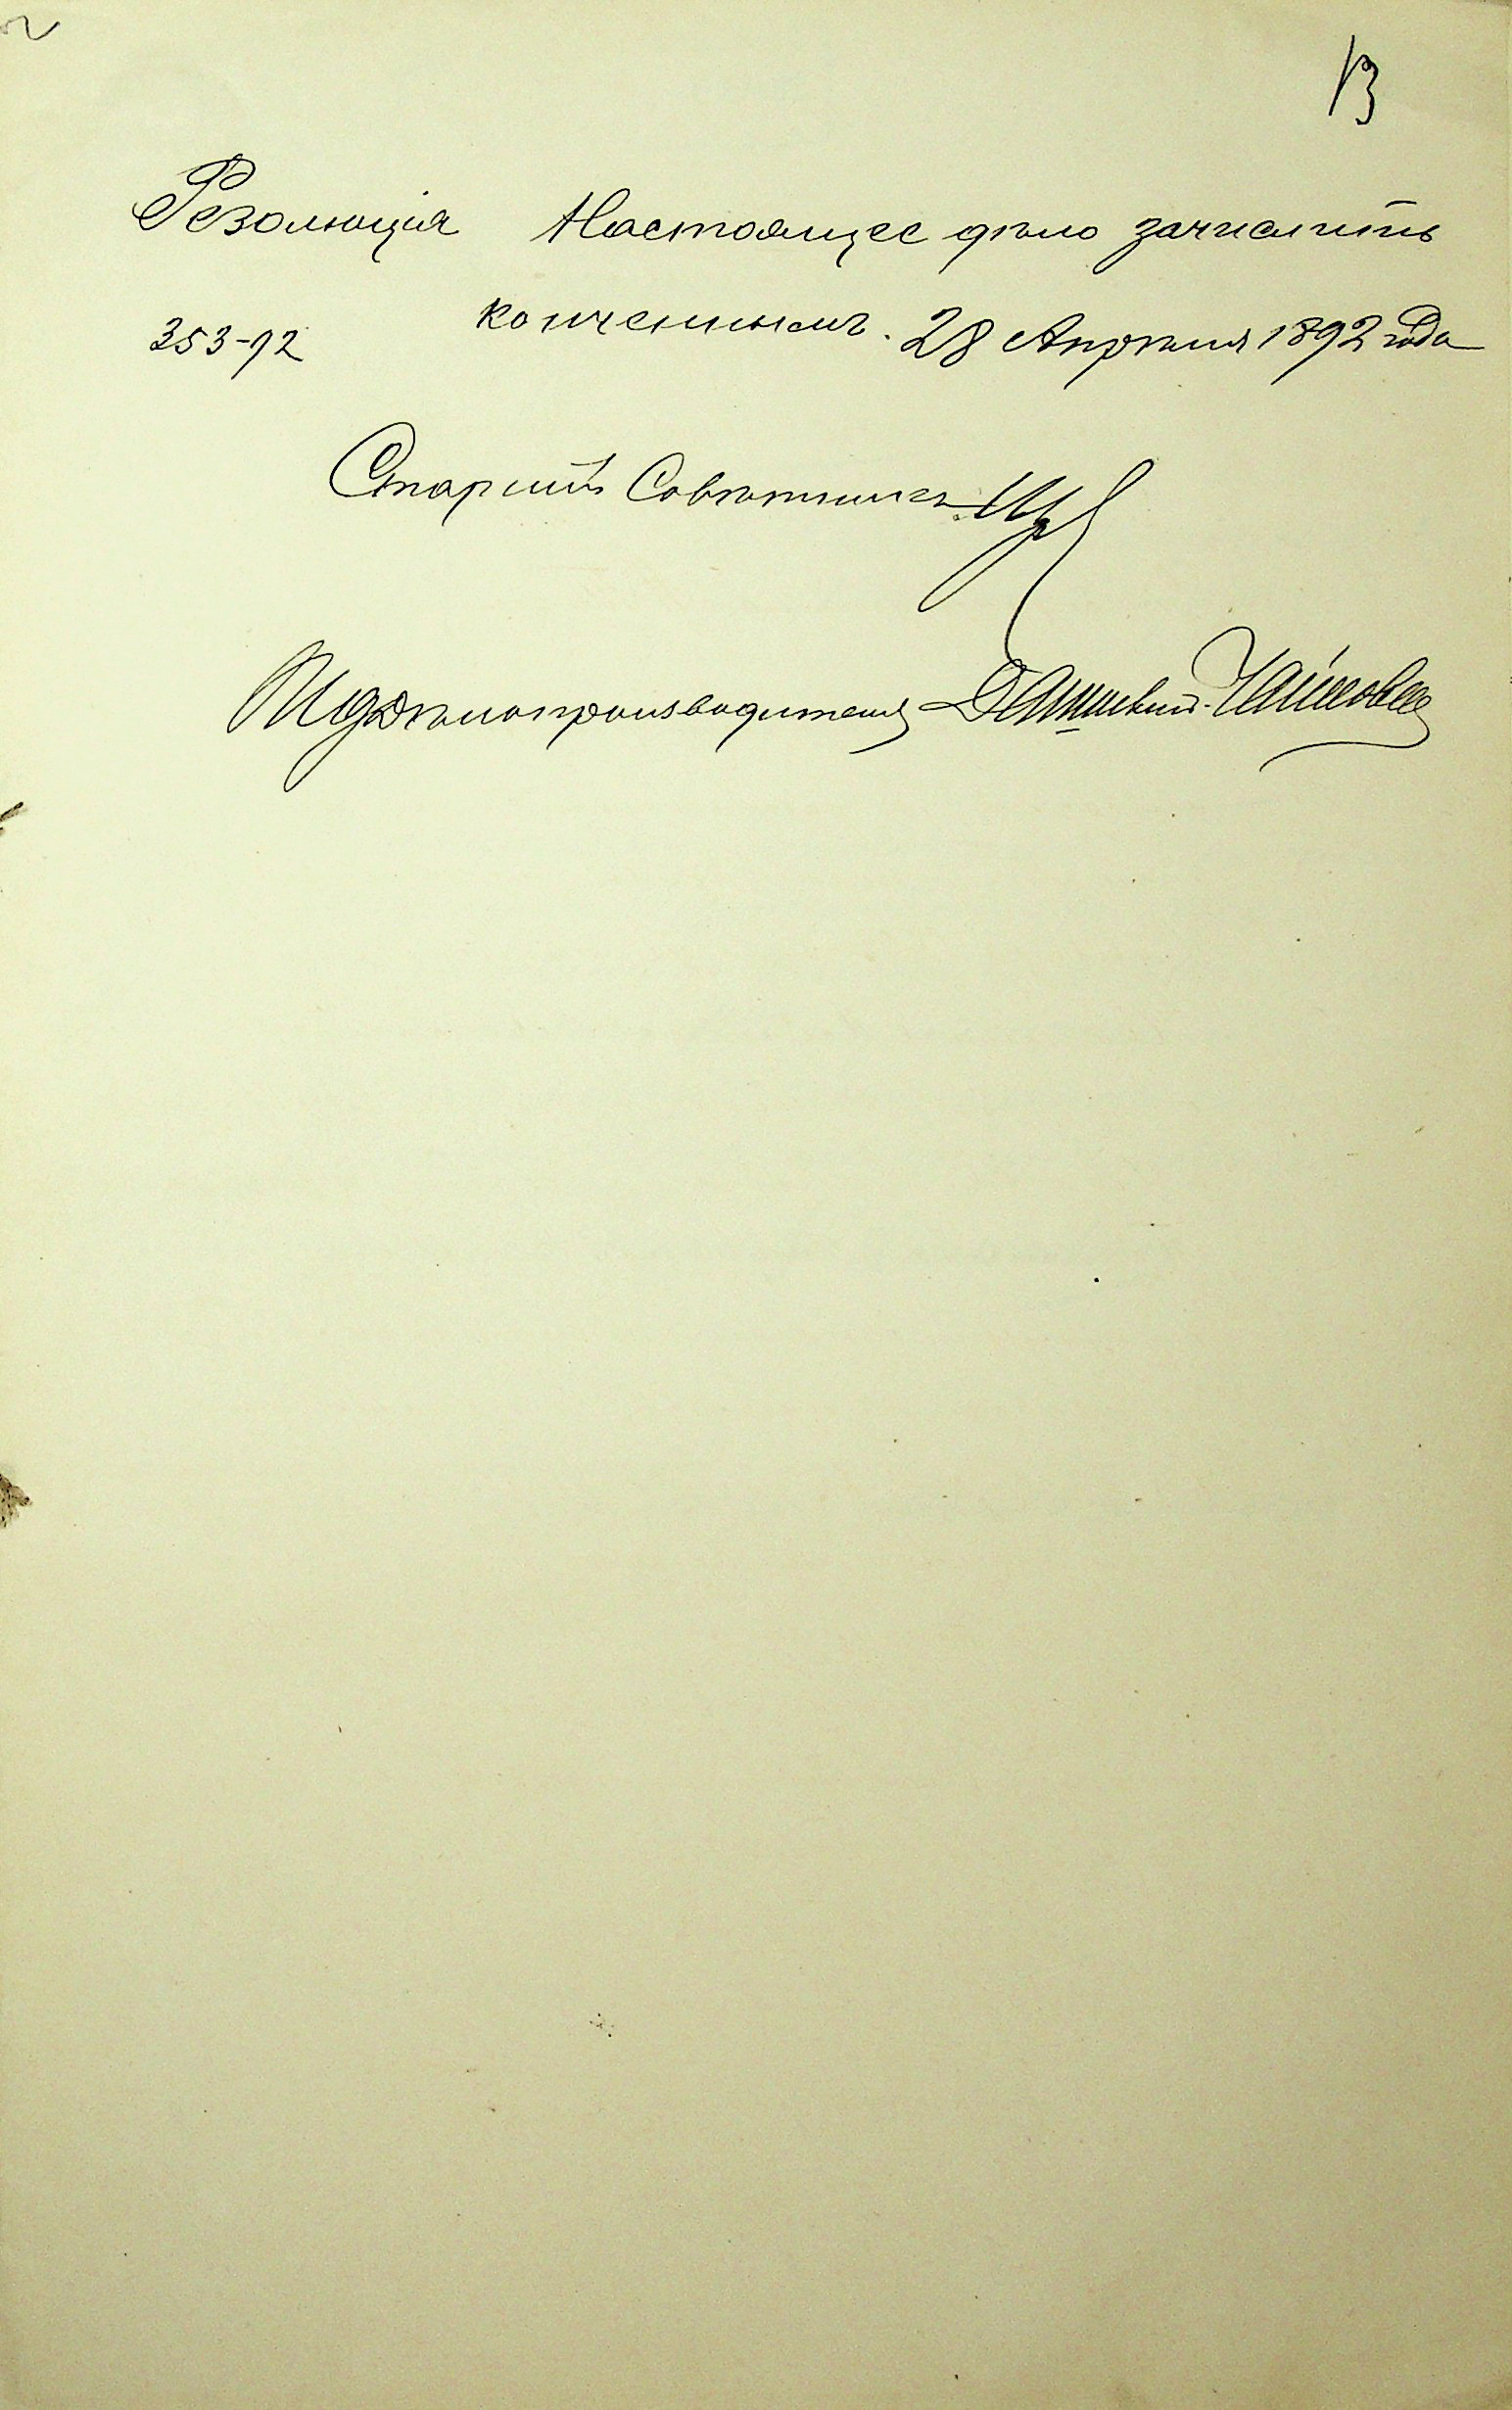 13
Резолюція Настоящее дѣло зачислить
353-92 конченнымъ. 28 Апрѣля 1892 года
Старшій Совѣтникъ
И д Дѣлопроизводителя